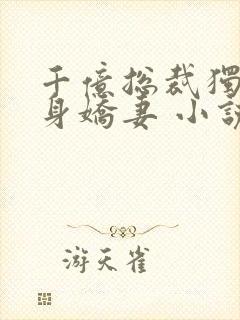 千億总裁獨
身嬌妻 小說
游天雀